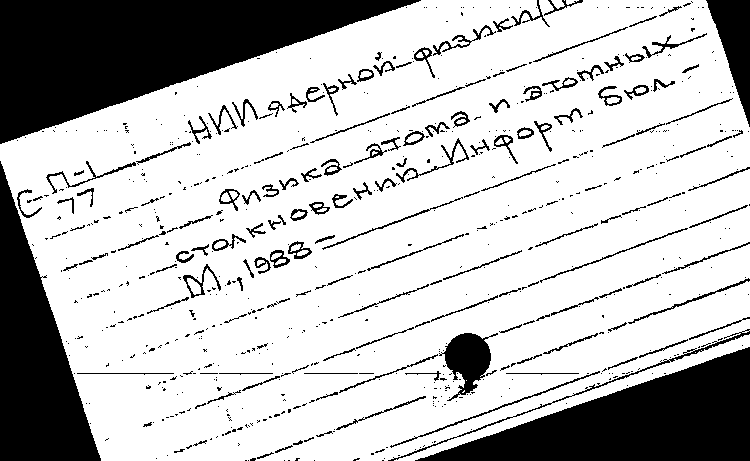 НИИ ядерной физики
С П-1
77
Физика атома и атомных
столкновений: Информ. бюл. -
М., 1988 -